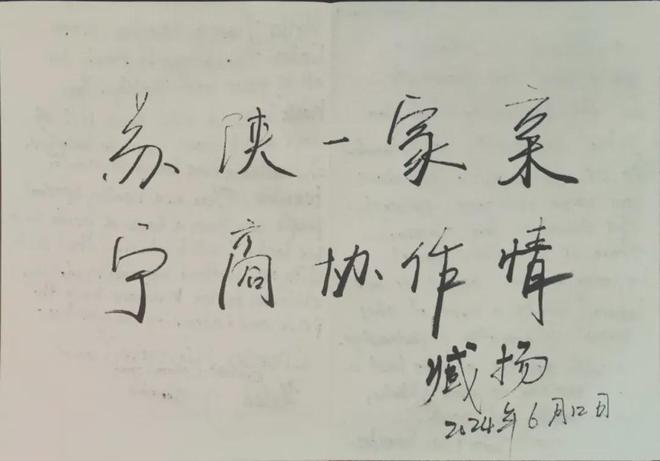 苏陕一家亲
宁商协作情
臧扬
2024年6月12日